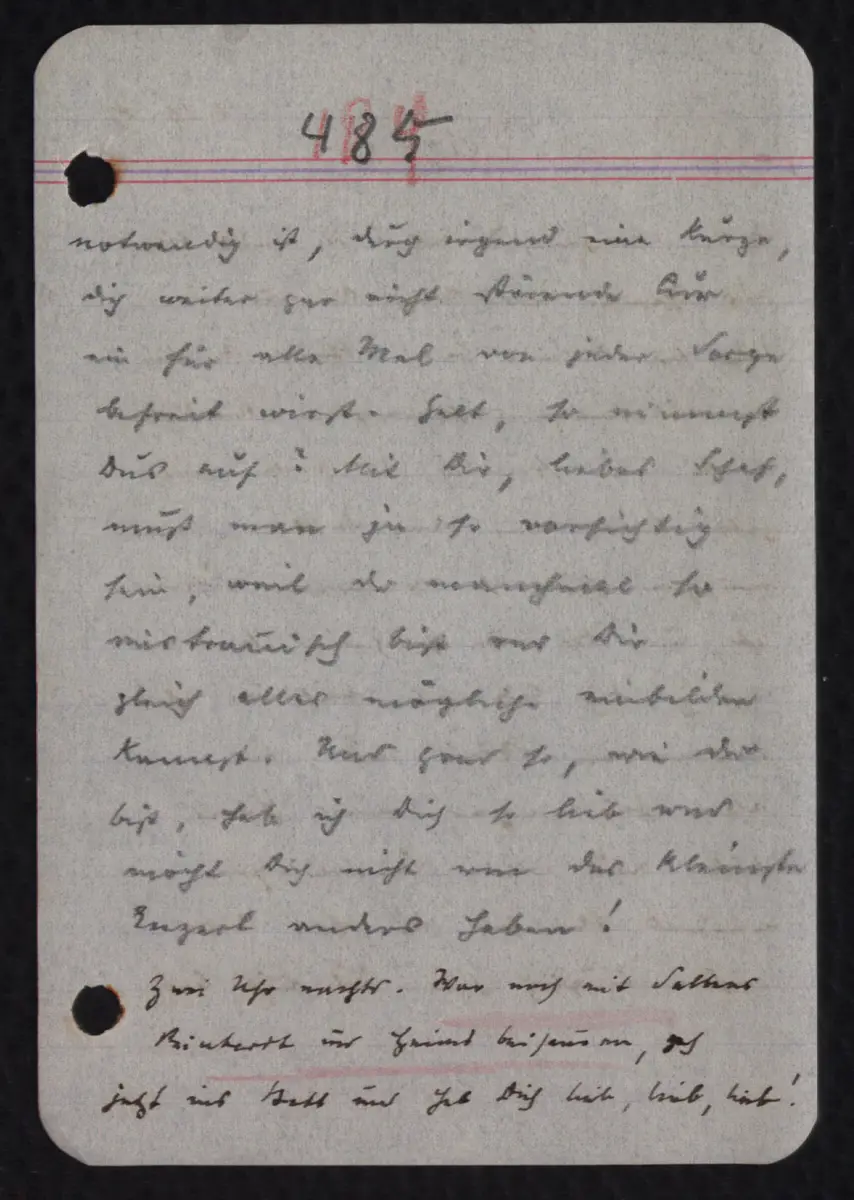 485
notwendig ist, durch irgend eine kurze,
dich weiter gar nicht störende Kur
ein für alle Mal von jeder Sorge
befreit wirst. Gelt, so nimmst
Dus auf? Mit Dir, liebes Schaf,
muß man ja so vorsichtig
sein, weil du manchmal so
mistrauisch bist und Dir
gleich alles mögliche einbilden
kannst. Und grad so, wie du
bist, hab ich Dich so lieb und
möcht Dich nicht um das kleinste
Enzerl anders haben!
Zwei Uhr nachts. War noch mit Saltens
Reinhardt und Heims beisammen, geh
jetzt ins Bett und hab Dich lieb, lieb, lieb!